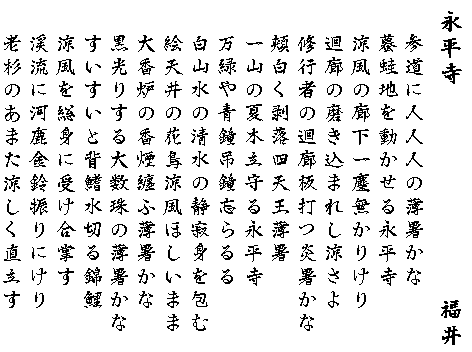 永平寺　福井
参道に人人人の薄暑かな
蟇蛙地を動かせる永平寺
涼風の廊下一塵無かりけり
廻廊の磨き込まれし涼さよ
修行者の廻廊板打つ炎暑かな
頬白く剥落四天王薄暑
一山の夏木立守る永平寺
万緑や青鐘吊鐘志らるる
白山水の清水の静寂身を包む
絵天井の花鳥涼風ほしいまま
大香炉の香煙纏ふ薄暑かな
黒光りする大数珠の薄暑かな
すいすいと背鰭水切る錦鯉
涼風を総身に受け合掌す
渓流に河鹿金鈴振りにけり
老杉のあまた涼しく直立す